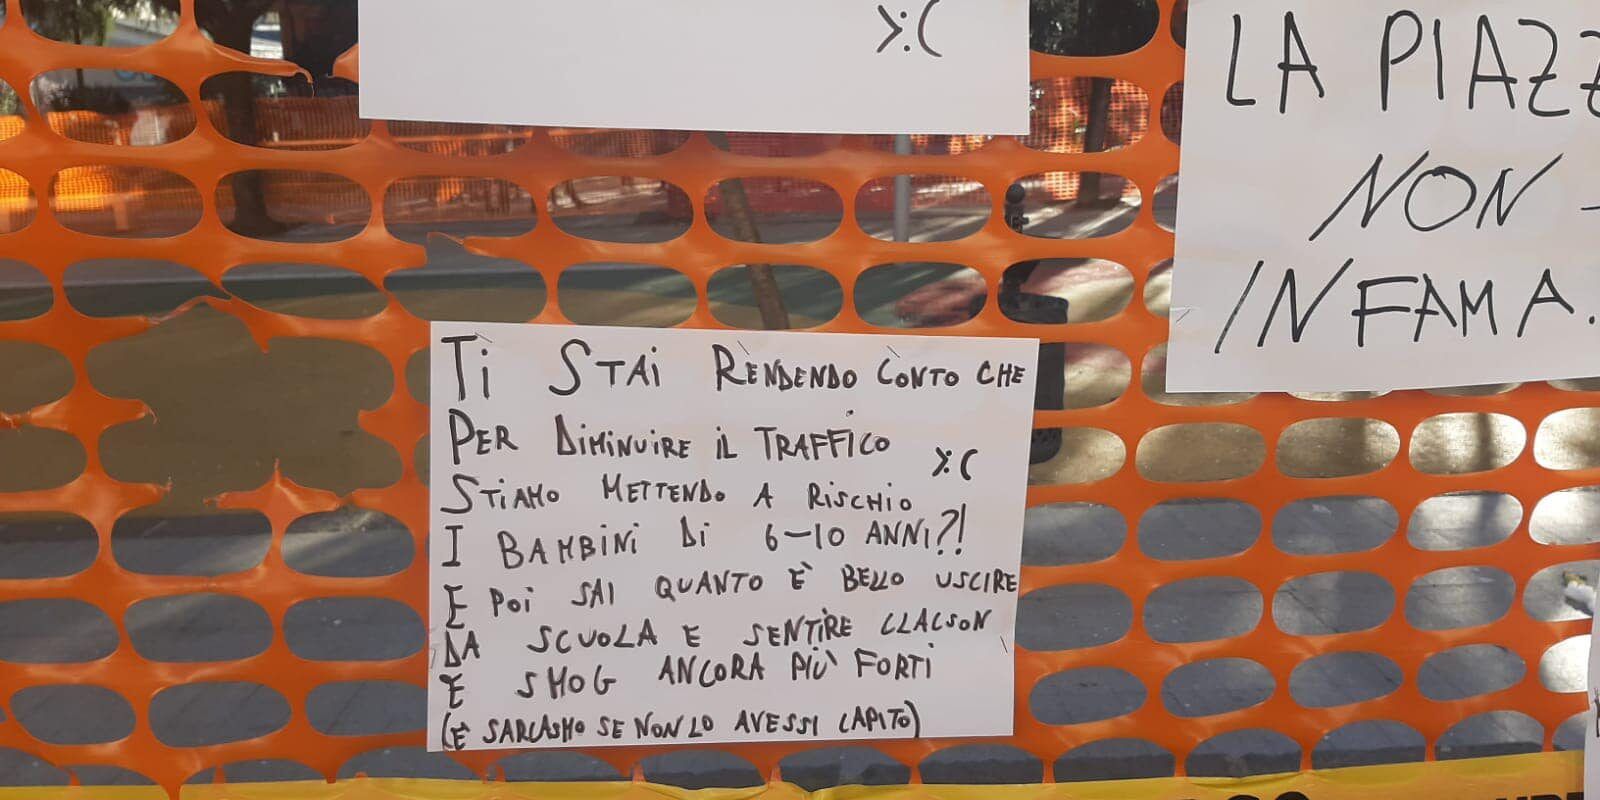 >:(
LA PIAZZ
NON
INFAMA.
TI STAI RENDENDO CONTO CHE
PER DIMINUIRE IL TRAFFICO >:(
STIAMO METTENDO A RISCHIO
I BAMBINI DI 6-10 ANNI?!
E POI SAI QUANTO È BELLO USCIRE
DA SCUOLA E SENTIRE CLACSON
E SMOG ANCORA PIÙ FORTI
(È SARCASMO SE NON LO AVESSI CAPITO)